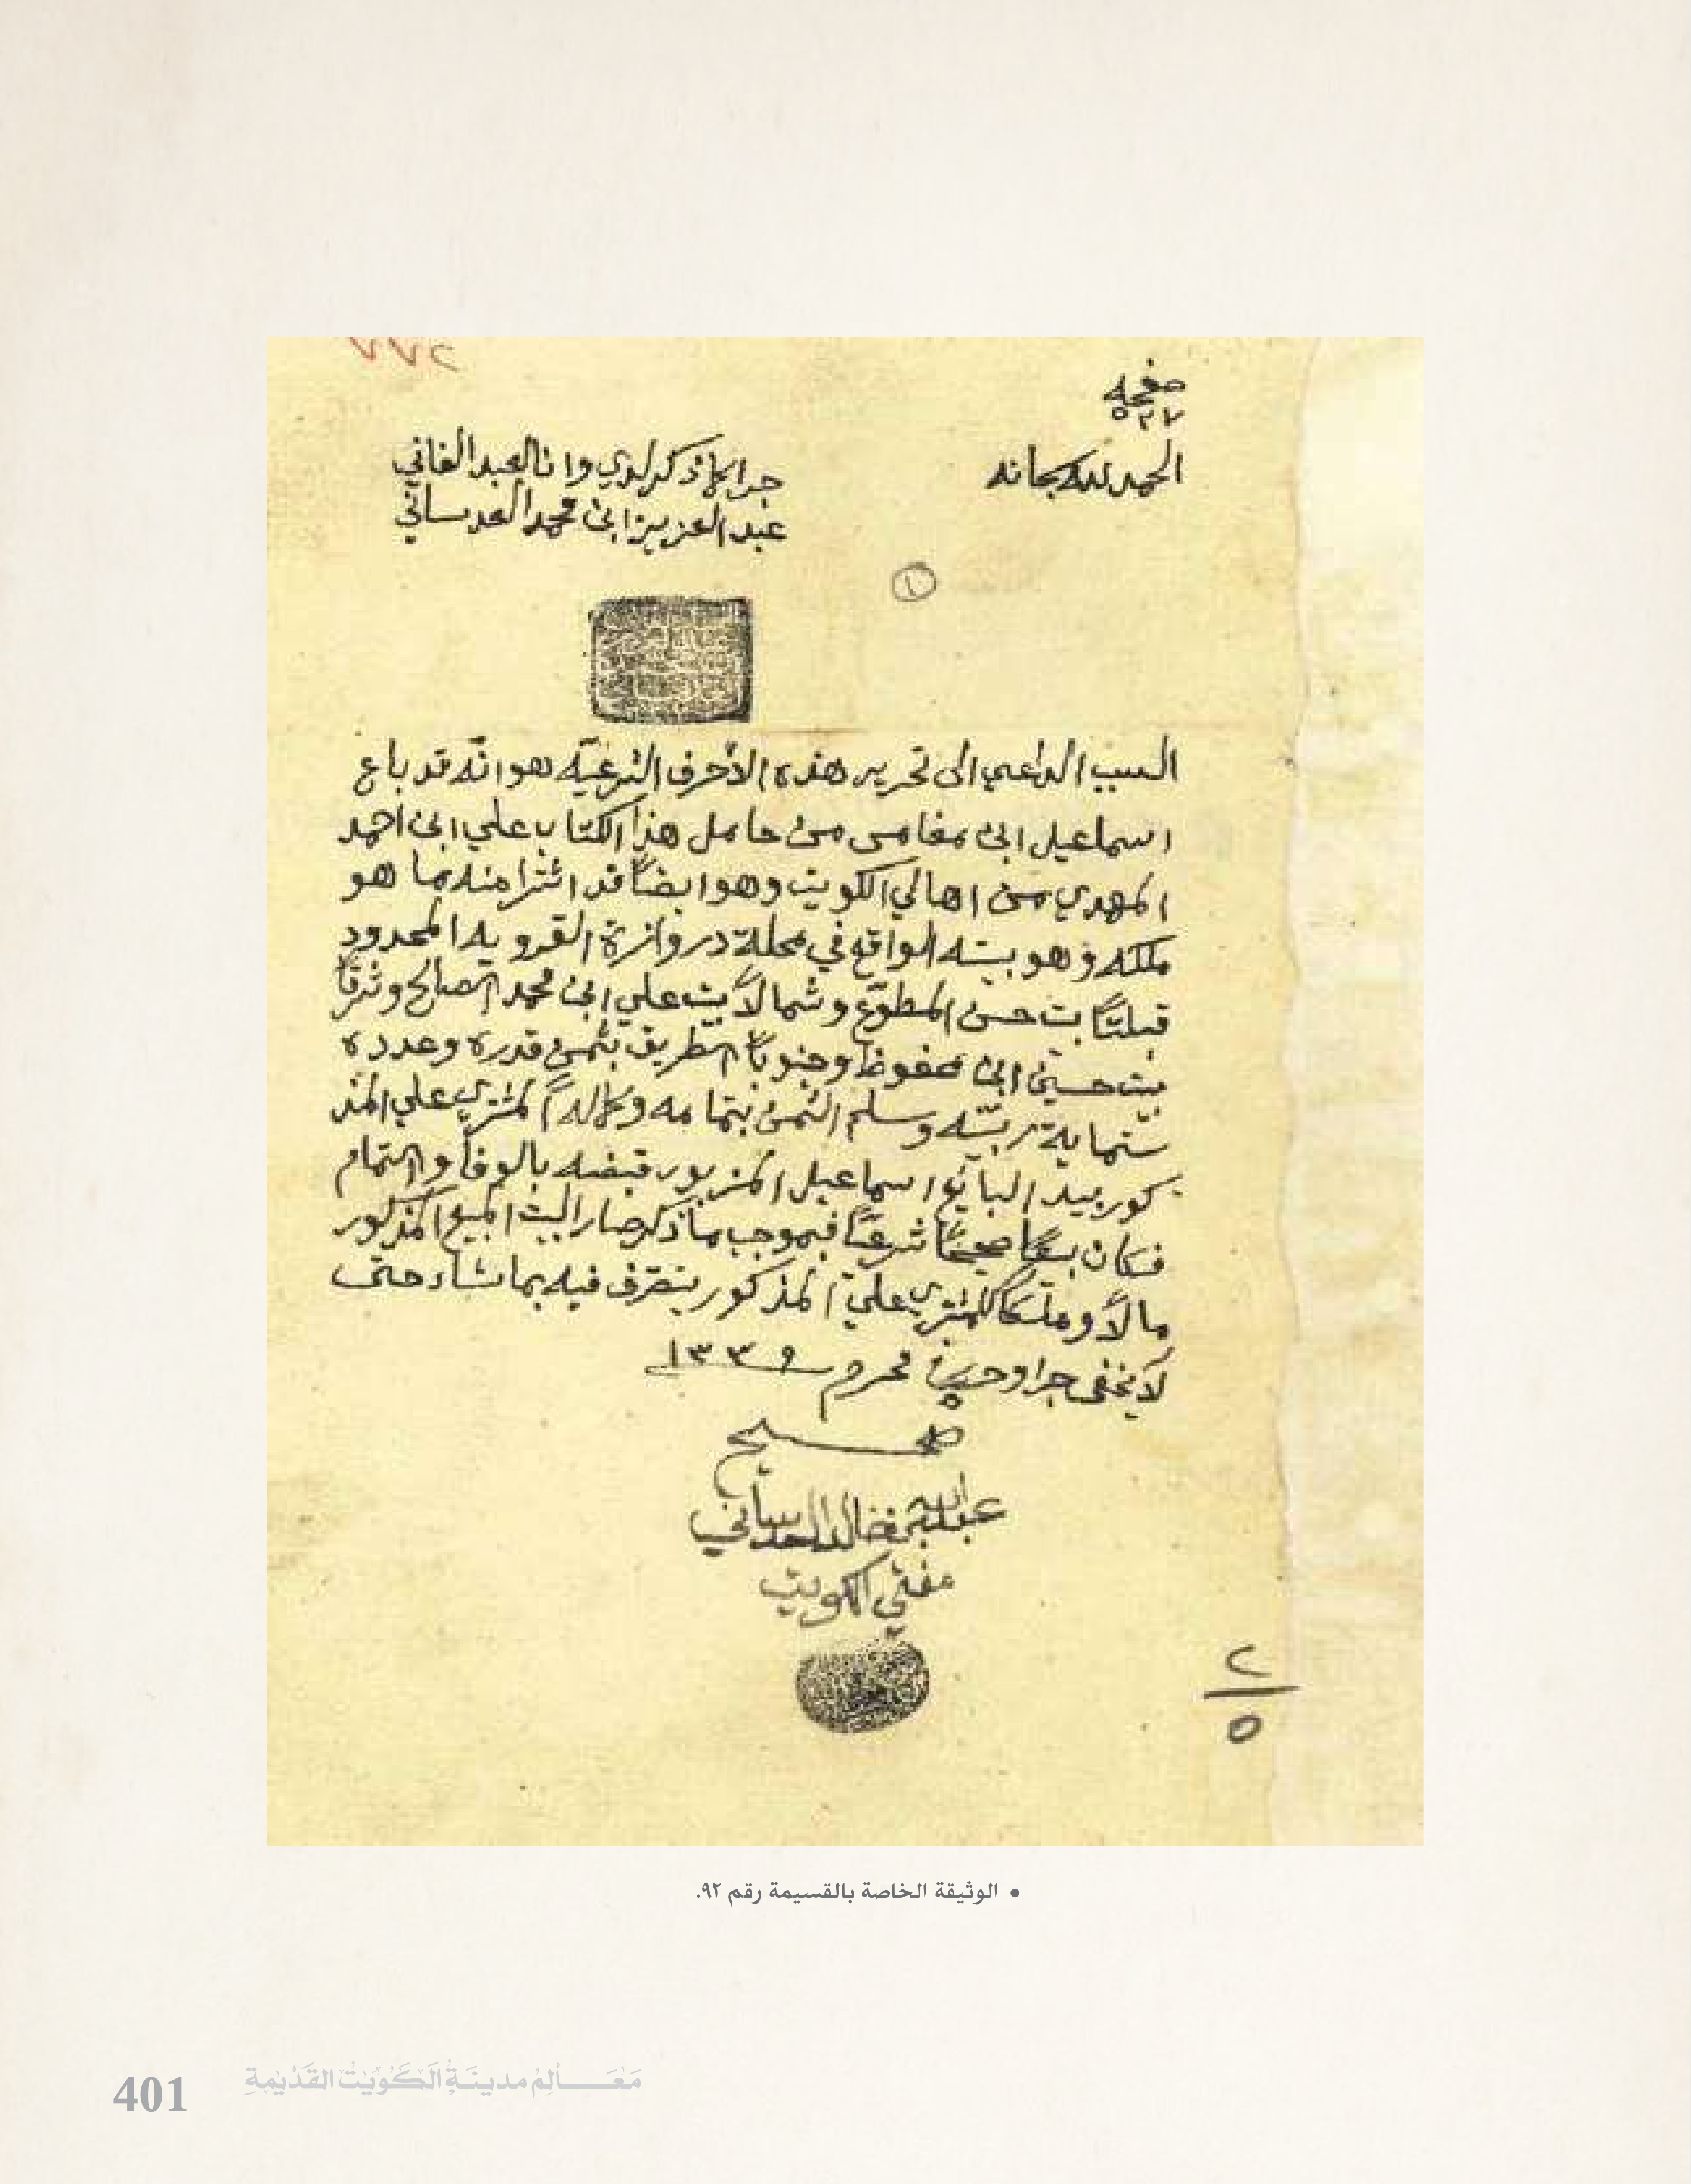 ٧٧٢
صفحه
٥٢٧
الحمد لله سبحانه
جرا كلما ذكر لدي وانا العبد الفاني
عبد العزيز ابن محمد العدساني
١
السبب الداعي الى تحرير هذه الأحرف الشرعيّه هو انّه قد باع
اسماعيل ابن مغامس من حامل هذا الكتاب علي ابن احمد
المهدي من اهالي الكويت وهو ايضاً قد اشترا منه ما هو
ملكه وهو بيته الواقع في محلة دروازة القرويه المحدود
قبلتاً بيت حسن المطوّع وشمالاً بيت علي ابن محمد الصالح وشرقاً
بيت حسين ابن محفوظ وجنوباً الطريق بثمن قدره وعدده
ستماية ربيّه وسلم الثمن بتمامه وكماله المشتري علي المذ
كور بيد البايع اسماعيل المزبور قبضه بالوفا والتمام
فكان بيعاً صحيحاً شرعيّاً فبموجب ما ذكر صار البيت المبيع المذكور
مالاً وملكاً للمشتري علي المذكور يتصرّف فيه بما شاء حتى
لا يخفى جرا وحرر في ٥ محرم ١٣٣٩
صحيح
عبدالله بن خالد العدساني
مفتي الكويت
٢
٥
• الوثيقة الخاصة بالقسيمة رقم ٩٢.
401 مَعَالِمْ مدينَةُ الكُوَيْتُ القَدْيمةِ